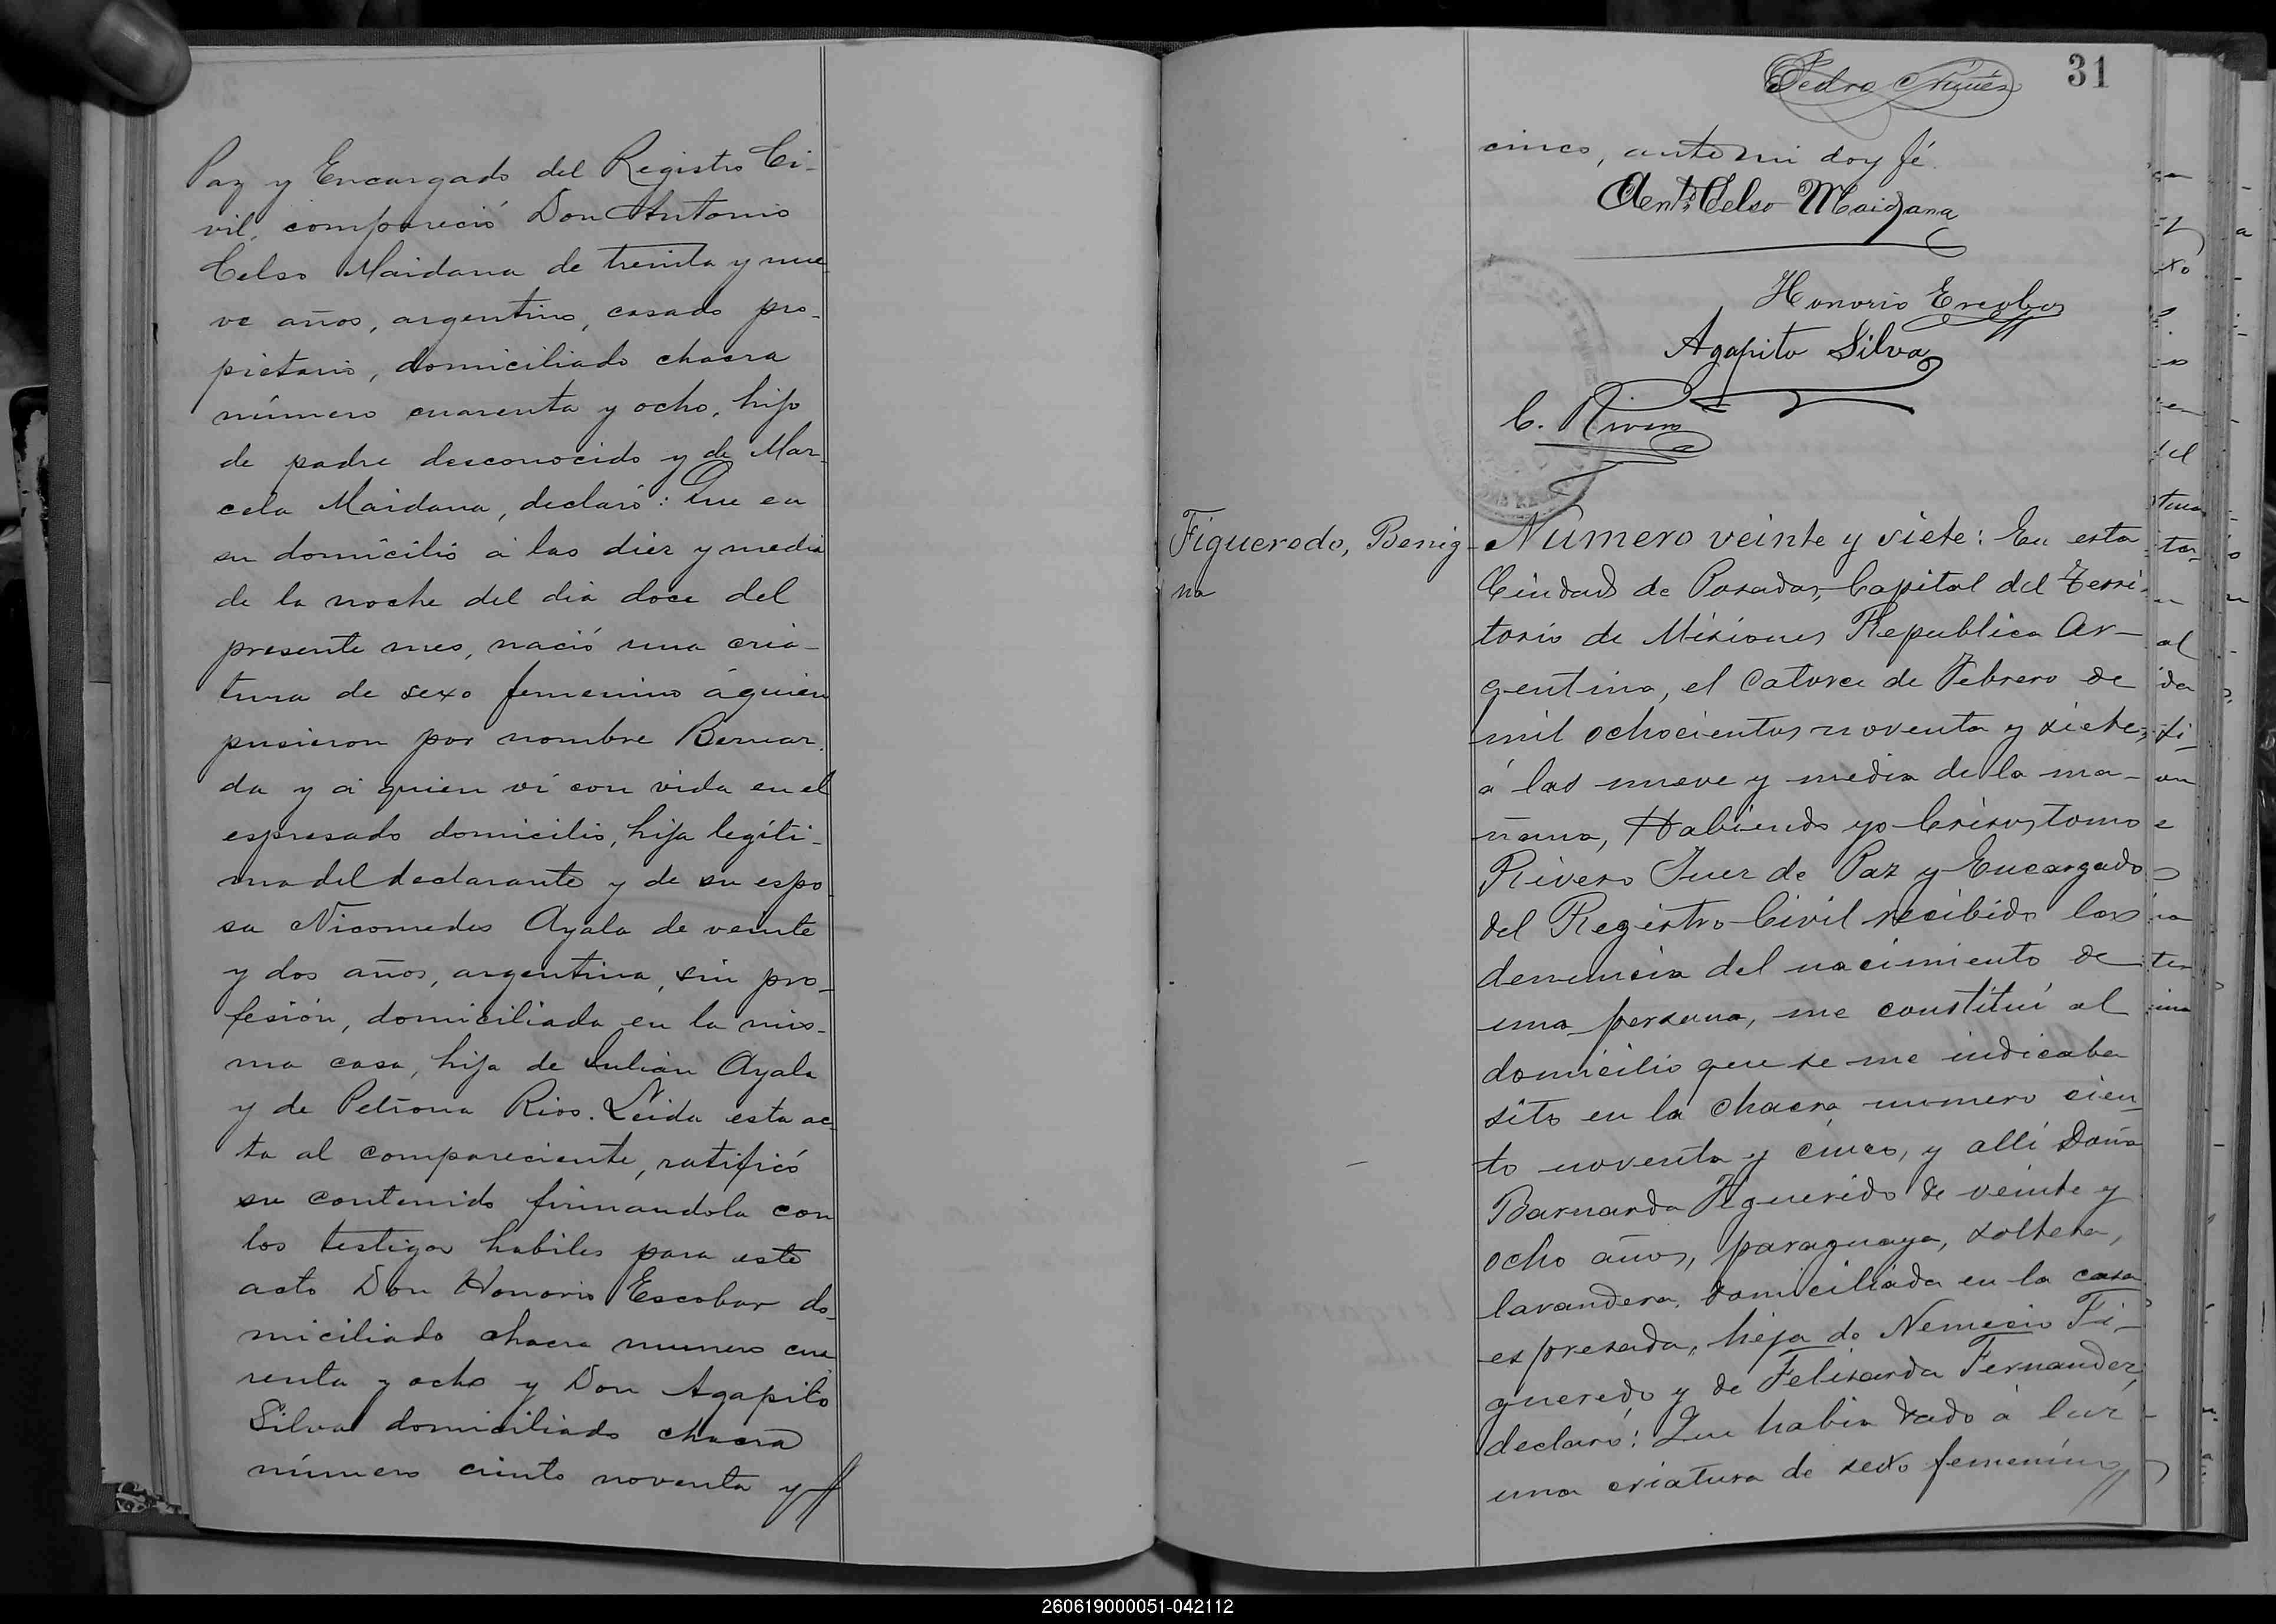 Paz y Encargado del Registro Ci-
vil, compareció Don Antonio
Celso Maidana de treinta y nue
ve años, argentino, casado pro-
pietario, domiciliado chacra
número cuarenta y ocho, hijo
de padre desconocido y de Mar-
cela Maidana, declaró: Que en
su domicilio á las diez y media
de la noche del dia doce del
presente mes, nació una cria-
tura de sexo femenino á quien
pusieron por nombre Bernar-
da y á quien ví con vida en el
espresado domicilio, hija legíti-
ma del declarante y de su espo-
sa Nicomedes Ayala de veinte
y dos años, argentina, sin pro-
fesión, domiciliada en la mis-
ma casa, hija de Julian Ayala
y de Petrona Rios. Leida esta ac-
ta al compareciente, ratificó
su contenido firmandola con
los testigos habiles para este
acto Don Honorio Escobar do-
miciliado chacra numero cua
renta y ocho y Don Agapito
Silva domiciliado chacra
número ciento noventa y
31
Pedro Nuñez
cinco, ante mi doy fé.
Ant. Celso Maidana
Honorio Escobar
Agapito Silva
C. Rivero
Figueredo, Benig-
na
Número veinte y siete: En esta
Ciudad de Posadas, Capital del Terri-
torio de Misiones Republica Ar-
gentina, el Catorce de Febrero de
mil ochocientos noventa y siete,
á las nueve y media de la ma-
ñana, Habiendo yo Crisostomo
Rivero Juez de Paz y Encargado
del Registro Civil recibido la
denuncia del nacimiento de
una persona, me constituí al
domicilio que se me indicaba
sito en la chacra numero cien-
to noventa y cinco, y allí Doña
Barnarda Figuerido de veinte y
ocho años, paraguaya, soltera,
lavandera, domiciliada en la casa
espresada, hija de Nemecio Fi-
gueredo y de Felisarda Fernandez,
declaró: Que habia dado á luz
una criatura de sexo femenino
260619000051-042112